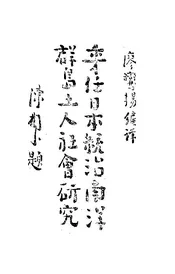 廖鸞揚編譯
委任日本統治南洋
群島土人社會研究
陳題